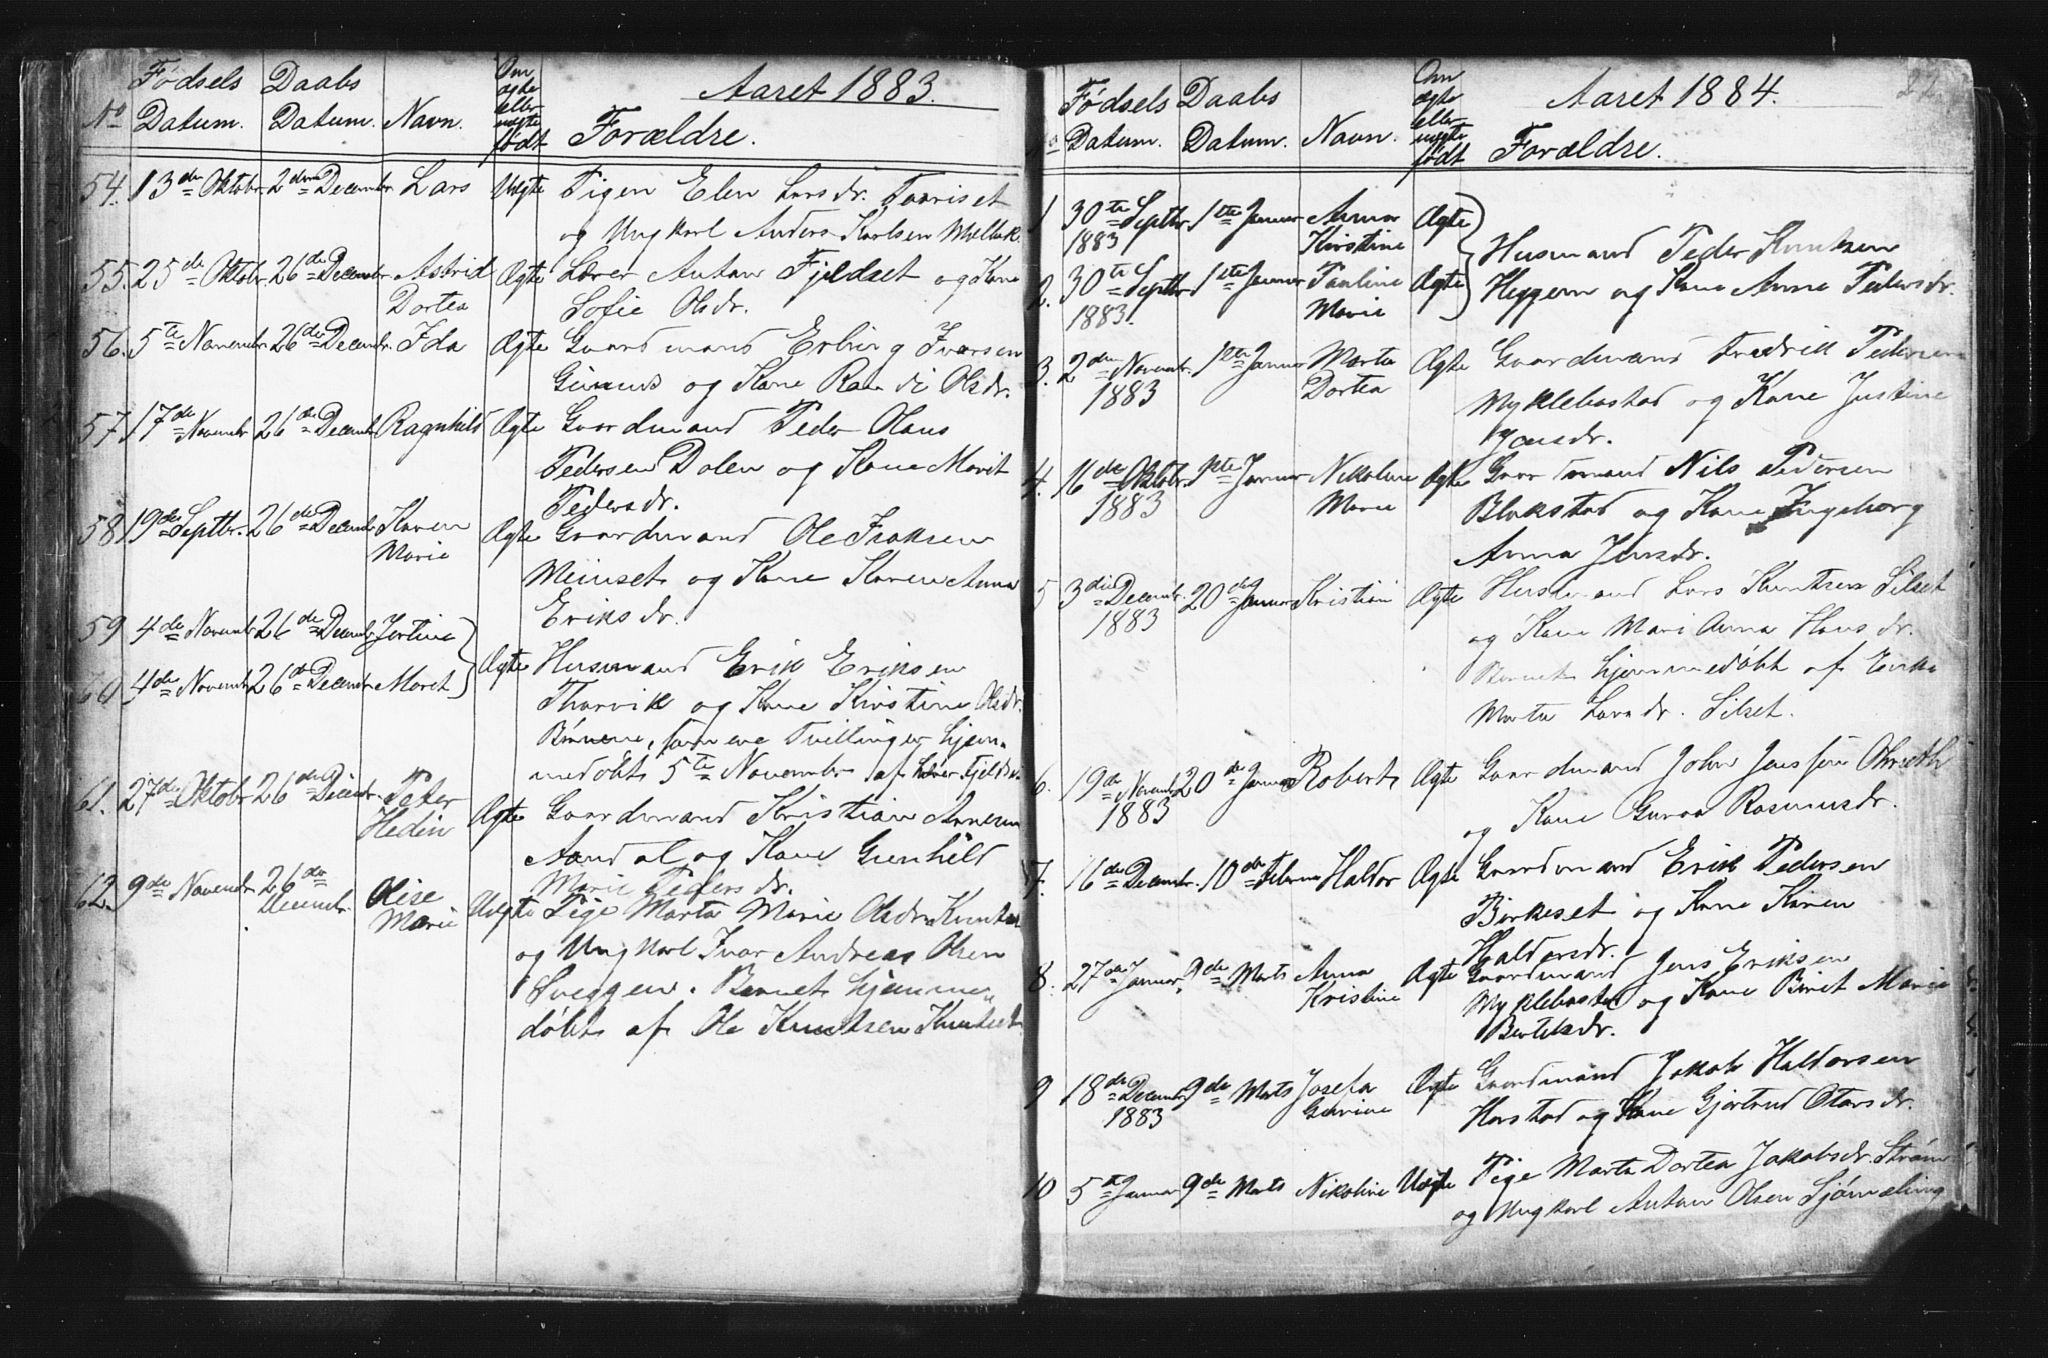 Aaret 1883.
No Fødsels Datum. Daabs Datum. Navn. Om ægte eller uægte født Forældre.
54. 13de Oktobr. 2den Decembr. Lars Uægte Pigen Elen Larsdr. Taariset
og Ungkarl Anders Karlsen
55. 25de Oktobr. 26de Decembr. Astrid Ægte Lærer Anton Fjeldset og Kone
Dortea Sofie Olsdr.
56. 5te Novembr. 26de Decembr. Ida Ægte Gaardmand Erling Iversen
Gimnes og Kone Randi Olsdr.
57. 17de Novembr. 26de Decembr. Ragnhild Ægte Gaardmand Peder Olaus
Pedersen Dalen og Kone Marit
Pedersdr.
58 19de Septbr. 26de Decembr. Karen Ægte Gaardmand Ole Isaksen
Marie Meiinset og Kone Karen Anna
Eriksdr.
59 4de Novembr. 26de Decembr. Jertine
60 4de Novembr. 26de Decembr. Maret Ægte Husmand Erik Eriksen
Thorvik og Kone Kirstine Olsdr.
Børnene, som ere Tvillinger hjem-
medøbt 5te Novembr. af Lærer Fjeldset
61. 27de Oktobr. 26de Decembr. Peter Ægte Gaardmand Kristian Arnesen
Hedin Aandal og Kone Gunhild
Marie Pedersdr.
62. 9de Novembr. 26de Decembr. Olise Uægte Pige Marta Marie Olsdr.
Marie og Ungkarl Ivar Andreas Olsen
Sveggen. Barnet hjemme
døbt af Ole Knudtsen
Aaret 1884. 22
No Fødsels Datum. Daabs Datum. Navn. Om ægte eller uægte født Forældre.
1 30te Septbr. 1ste Januar Anna Ægte
1883 Kirstine
2. 30te Septbr. 1ste Januar Pauline Ægte Husmand Peder Knutsen
1883. Marie Heggem og Kone Anne Pedersdr.
3. 2den Novembr. 1ste Januar Marta Ægte Gaardmand Fredrik Pedersen
1883 Dortea Myklebostad og Kone Justine
Jensdr.
4. 16de Oktobr. 1ste Januar Nikoline Ægte Gaardmand Nils Pedersen
1883 Marie Blakstad og Kone Ingeborg
Anna Jensdr.
5 3die Decembr. 20de Januar Kristian Ægte Husmand Lars Knutsen Silset
1883 og Kone Mari Anna Hansdr.
Barnet hjemmedøbt af Enke
Marta Larsdr. Silset.
6. 19de Novembr. 20de Januar Robert Ægte Gaardmand John Jenssen
1883 og Kone Guroa Rasmusdr.
7. 16de Decembr. 10de Februar Haldor Ægte Gaardmand Erik Pedersen
Birkeset og Kone Karen
Haldorsdr.
8. 27de Januar 9de Marts Anna Ægte Gaardmand Jens Eriksen
Kristine Myklebostad og Kone Beret Marie
Bertelsdr.
9 18de Decembr. 9de Marts Josefa Ægte Gaardmand Jakob Haldorsen
1883 Gurine Harstad og Kone Gjertrud Olasdr.
10 5te Januar 9de Marts Nikoline Uægte Pige Marta Dortea Jakobsdr. Strøm
og Ungkarl Anton Olsen Sjømæling